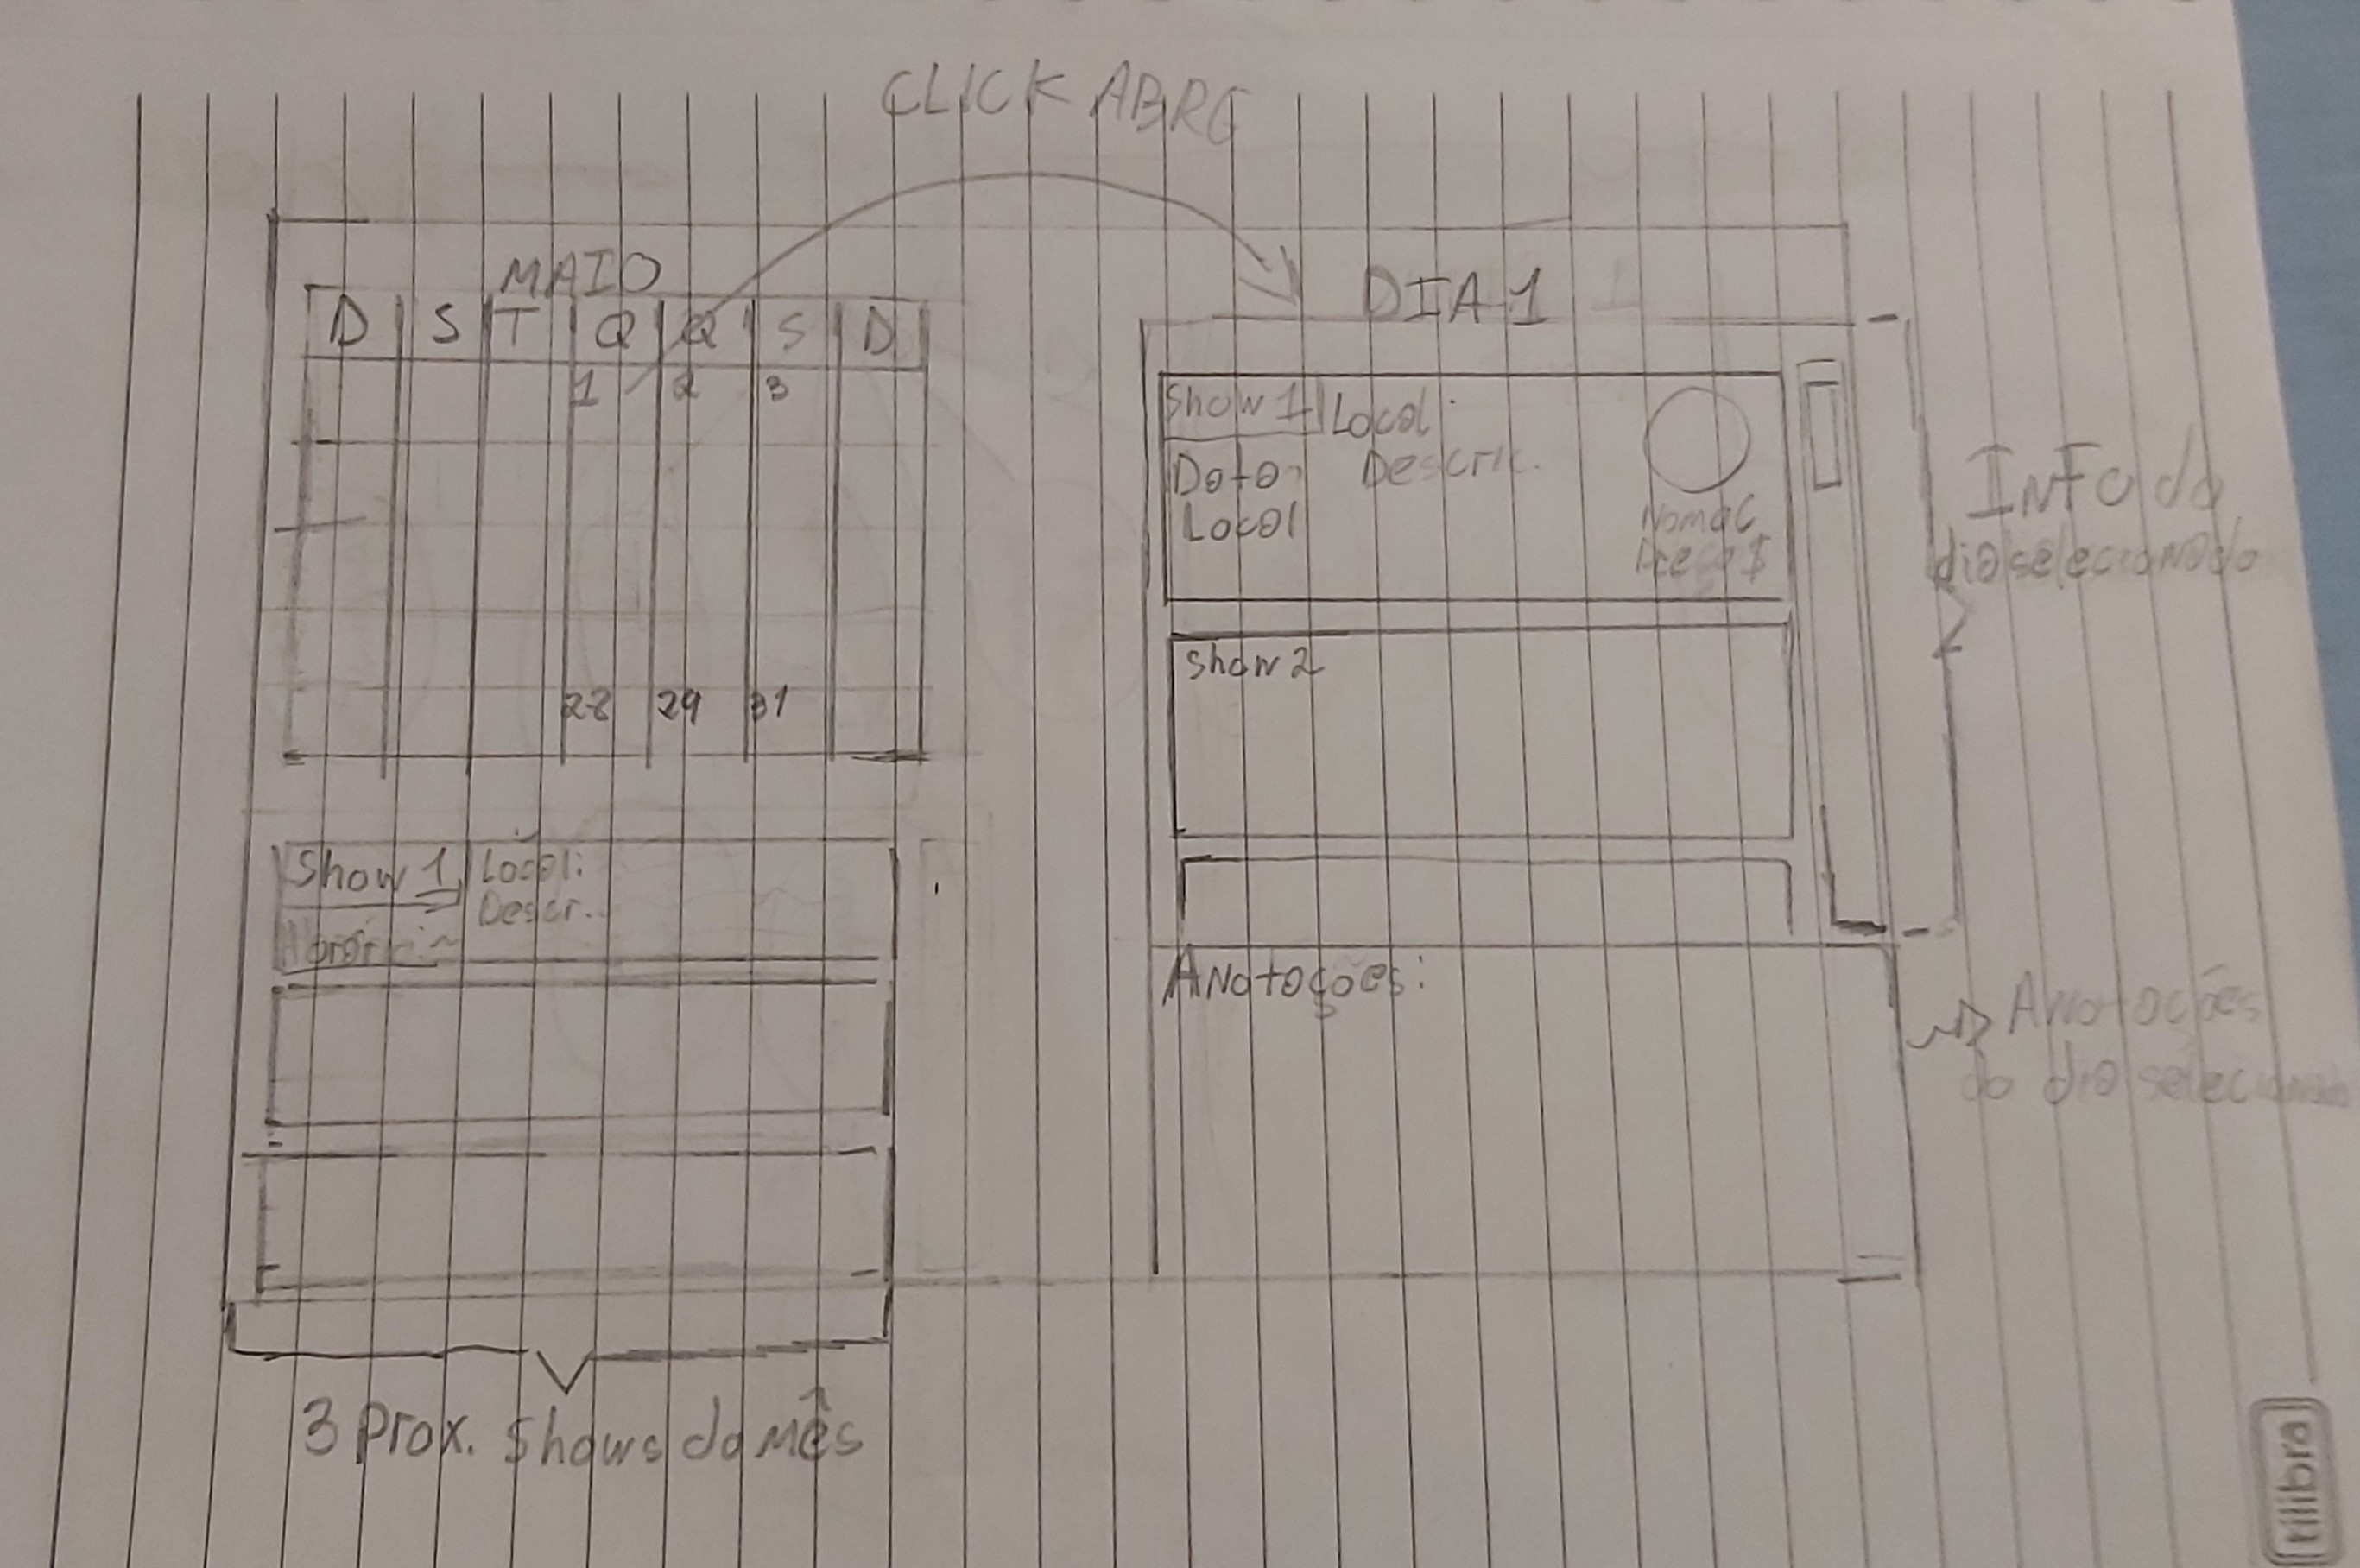 CLICK ABRE
MAIO
D S T Q Q S D
1 2 3
28 29 31
Show 1 Local:
Descr.
3 Prox. Shows do mês
DIA 1
Show 1 Local:
Data Descric.
Local
Preço $
Show 2
Anotações:
Info do
dia selecionado
Anotações
do dia selecionado
tilibra